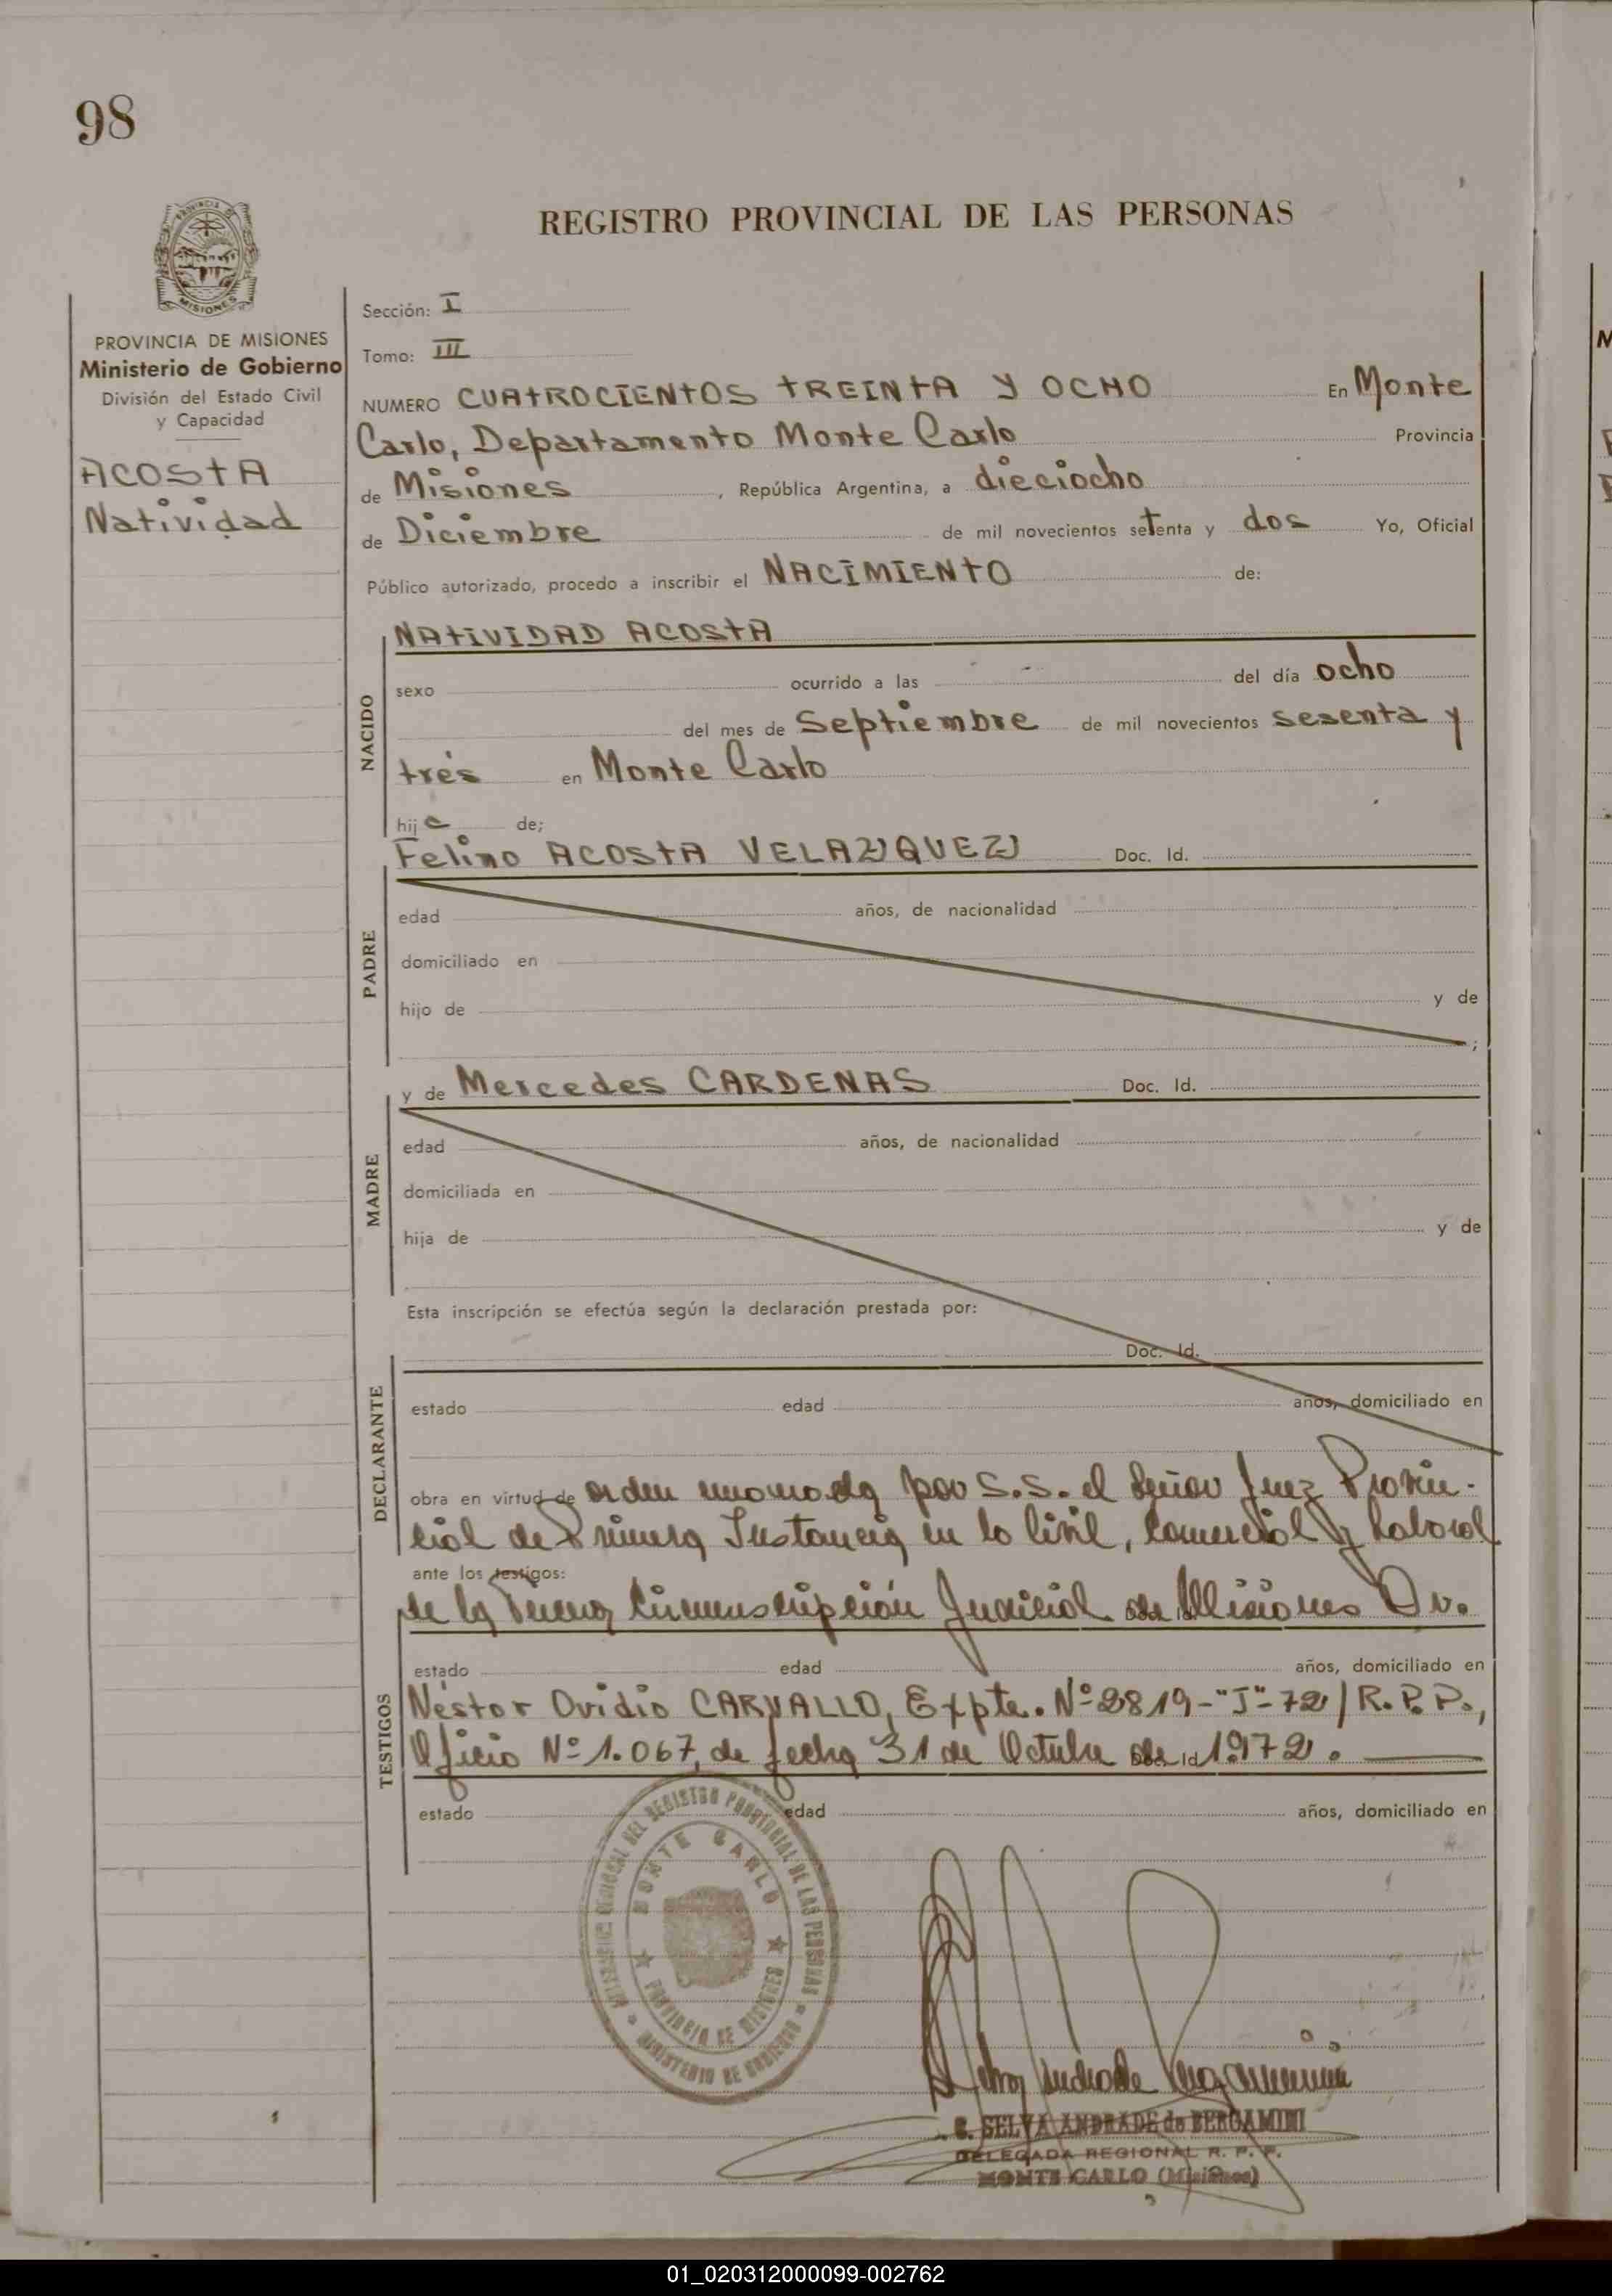 98
REGISTRO PROVINCIAL DE LAS PERSONAS
PROVINCIA DE
MISIONES
PROVINCIA DE MISIONES
Ministerio de Gobierno
División del Estado Civil
y Capacidad
ACOSTA
Natividad
Sección: I
Tomo: III
NUMERO CUATROCIENTOS TREINTA Y OCHO En Monte
Carlo, Departamento Monte Carlo Provincia
de Misiones, República Argentina, a dieciocho
de Diciembre de mil novecientos setenta y dos Yo, Oficial
Público autorizado, procedo a inscribir el NACIMIENTO de:
NACIDO
NATIVIDAD ACOSTA
sexo ocurrido a las del día ocho
del mes de Septiembre de mil novecientos sesenta y
tres en Monte Carlo
hij de;
PADRE
Felino ACOSTA VELAZQUEZ Doc. Id.
edad años, de nacionalidad
domiciliado en
hijo de y de
;
MADRE
y de Mercedes CARDENAS Doc. Id.
edad años, de nacionalidad
domiciliada en
hija de y de
Esta inscripción se efectúa según la declaración prestada por:
Doc. Id.
DECLARANTE
estado edad años, domiciliado en
obra en virtud de orden emanada por S.S. el Señor Juez Provin-
cial de Primera Instancia en lo Civil, Comercial y Laboral
ante los testigos:
de la Circunscripción Judicial de Misiones Dr.
TESTIGOS
estado edad años, domiciliado en
Néstor Ovidio CARVALLO, Expte. Nº 2819-"J"-72/R.P.P.,
Oficio Nº 1.067, de fecha 31 de Octubre de 1972.
estado edad años, domiciliado en
DEL REGISTRO PROVINCIAL DE LAS PERSONAS
MONTE CARLO
PROVINCIA DE MISIONES
MINISTERIO DE GOBIERNO
Selva Andrade
SELVA ANDRADE de BERGAMINI
DELEGADA REGIONAL R. P. P.
MONTE CARLO (Misiones)
01_020312000099-002762